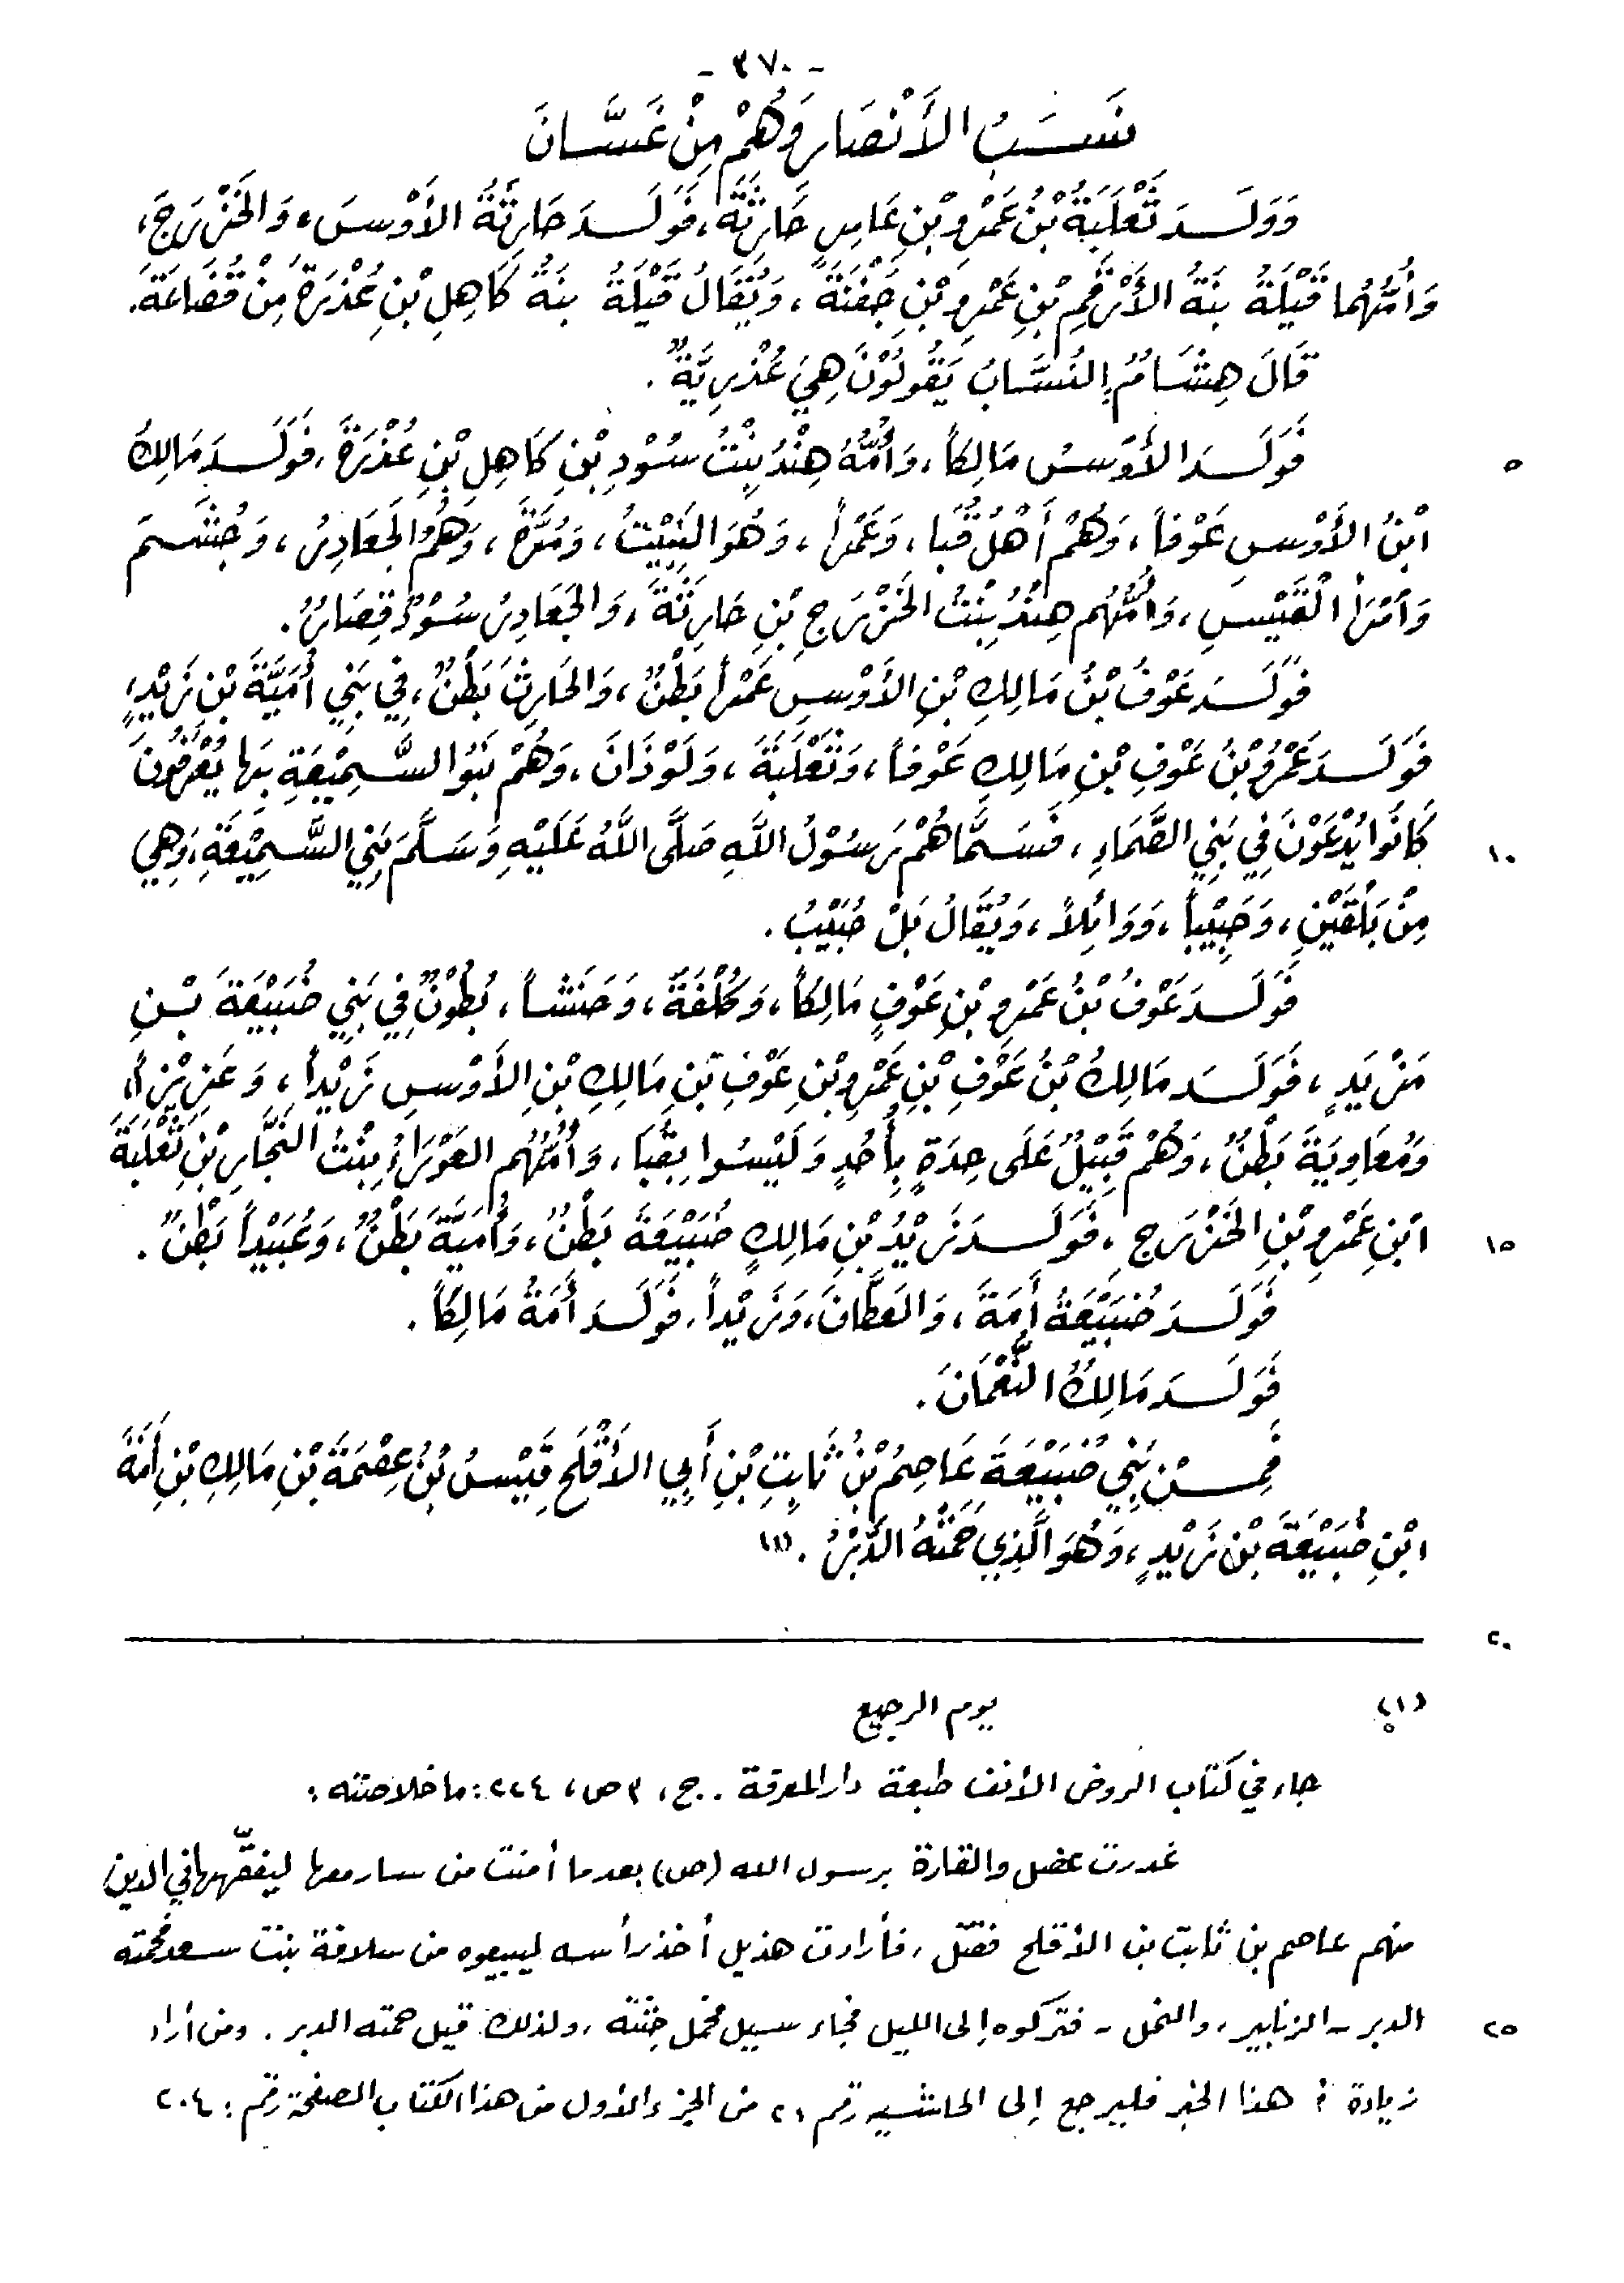 - ٣٧٠ -
نَسَبُ الأَنْصَارِ وَهُمْ مِنْ غَسَّانَ
وَوَلَدَ ثَعْلَبَةُ بْنُ عَمْرِو بْنِ عَامِرٍ حَارِثَةَ، فَوَلَدَ حَارِثَةُ الأَوْسَ، وَالخَزْرَجَ،
وَأُمُّهُما قَيْلَةُ بِنَةُ الأَرْقَمِ بْنِ عَمْرِو بْنِ جَفْنَةَ، وَيُقَالُ قَيْلَةُ بِنَةُ كَاهِلِ بْنِ عُذْرَةَ مِنْ قُضَاعَةَ.
قَالَ هِشَامُ: النُسَّابُ يَقُولُوْنَ هِيَ عُذْرِيَّةٌ.
٥ فَوَلَدَ الأَوْسُ مَالِكاً، وَأُمُّهُ هِنْدُ بِنْتُ سُوْدِ بْنِ كَاهِلِ بْنِ عُذْرَةَ، فَوَلَدَ مَالِكُ
ابْنُ الأَوْسِ عَوْفاً، وَهُمْ أَهْلُ قُبَا، وَعَمْراً، وَهُوَ النَّبِيْتُ، وَمُرَّةَ، وَهُمُ الجَعَادِرُ، وَجُشَمَ
وَامْرَأَ الْقَيْسِ، وَأُمُّهُم هِنْدُ بِنْتُ الخَزْرَجِ بْنِ حَارِثَةَ، وَالجَعَادِرُ سُوْدٌ قِصَارٌ.
فَوَلَدَ عَوْفُ بْنُ مَالِكِ بْنِ الأَوْسِ عَمْراً بَطْنٌ، وَالحَارِثَ بَطْنٌ، فِي بَنِي أُمَيَّةَ بْنِ زَيْدٍ،
فَوَلَدَ عَمْرُو بْنُ عَوْفِ بْنِ مَالِكِ عَوْفاً، وَثَعْلَبَةَ، وَلَوْذَانَ، وَهُمْ بَنُو السَّمِيْعَةِ بِهَا يُعْرَفُونَ
١٠ كَانُوا يُدْعَوْنَ فِي بَنِي الصَّمَاءِ، فَسَمَّاهُمْ رَسُوْلُ اللَّهِ صَلَّى اللَّهُ عَلَيْهِ وَسَلَّمَ بَنِي السَّمِيْعَةِ، وَهِيَ
مِنْ بَلْقَيْنِ، وَحَبِيْباً، وَوَائِلاً، وَيُقَالُ بَلْ حُبَيْبُ.
فَوَلَدَ عَوْفُ بْنُ عَمْرِو بْنِ عَوْفٍ مَالِكاً، وَكُلْفَةَ، وَحَنَشاً، بُطُوْنٌ فِي بَنِي ضُبَيْعَةَ بْنِ
زَيْدٍ، فَوَلَدَ مَالِكُ بْنُ عَوْفِ بْنِ عَمْرِو بْنِ عَوْفِ بْنِ مَالِكِ بْنِ الأَوْسِ زَيْداً، وَعَزِيْزاً،
وَمُعَاوِيَةَ بَطْنٌ، وَهُمْ قَبِيْلٌ عَلَى حِدَةٍ بِأُحُدٍ وَلَيْسُوا بِقُبَا، وَأُمُّهُم العَوْرَاءُ بِنْتُ النَّجَّارِ بْنِ ثَعْلَبَةَ
١٥ ابْنِ عَمْرِو بْنِ الخَزْرَجِ، فَوَلَدَ زَيْدُ بْنِ مَالِكٍ ضُبَيْعَةَ بَطْنٌ، وَأُمَيَّةَ بَطْنٌ، وَعُبَيْداً بَطْنٌ.
فَوَلَدَ ضُبَيْعَةُ أَمَةَ، وَالعَطَّافَ، وَزَيْداً، فَوَلَدَ أَمَةُ مَالِكاً.
فَوَلَدَ مَالِكُ النُّعْمَانَ.
فَمِنْ بَنِي ضُبَيْعَةَ عَاصِمُ بْنُ ثَابِتِ بْنِ أَبِي الأَقْلَحِ قَيْسُ بْنُ عِصْمَةَ بْنِ مَالِكِ بْنِ أَمَةَ
ابْنِ ضُبَيْعَةَ بْنِ زَيْدٍ، وَهُوَ الَّذِي حَمَتْهُ الدَّبْرُ. (١)
٢٠
(١) يوم الرجيع
جاء في كتاب الروض الأنف طبعة دار المعرفة . ج، ٣ ص، ٢٢٤ : ما خلاصته :
غدرت عضل والقارة برسول الله (ص) بعدما أمنت من سار معها ليفقّهها في الدين
منهم عاصم بن ثابت بن الأقلح فقتل، فأرادت هذيل أخذ رأسه ليبيعوه من سلافة بنت سعد فحمته
٢٥ الدبر - الزنابير، والنحل - فتركوه إلى الليل فجاء سيل فحمل جثته، ولذلك قيل حمته الدبر . ومن أراد
زيادة في هذا الخبر فليرجع إلى الحاشيه رقم ٢١ من الجزء الأول من هذا الكتاب الصفحة رقم : ٢٠٤